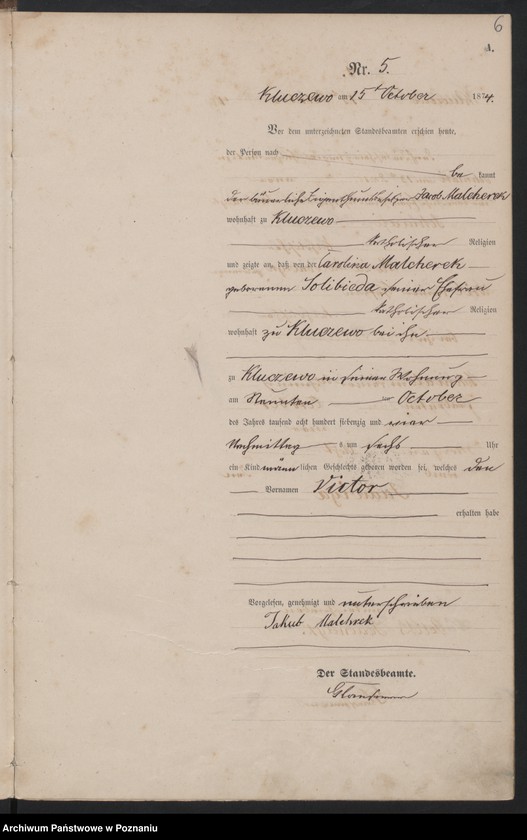 6
A.
Nr. 5.
Kluczewo am 15t October 1874.
Vor dem unterzeichneten Standesbeamten erschien heute,
der Person nach
be kannt
der bäuerliche Eigenthumsbesitzer Jacob Malcherek
wohnhaft zu Kluczewo
katholischer Religion
und zeigte an, daß von der Carolina Malcherek
geborenen Solibieda seiner Ehefrau
katholischer Religion
wohnhaft zu Kluczewo bei ihm
zu Kluczewo in seiner Wohnung
am Neunten ten October
des Jahrs tausend acht hundert siebenzig und vier
Nachmittag s um sechs Uhr
ein Kind männ lichen Geschlechts geboren worden sei, welches den
Vornamen Victor
erhalten habe
Vorgelesen, genehmigt und unterschrieben
Jakub Malchrek
Der Standesbeamte.
Archiwum Państwowe w Poznaniu